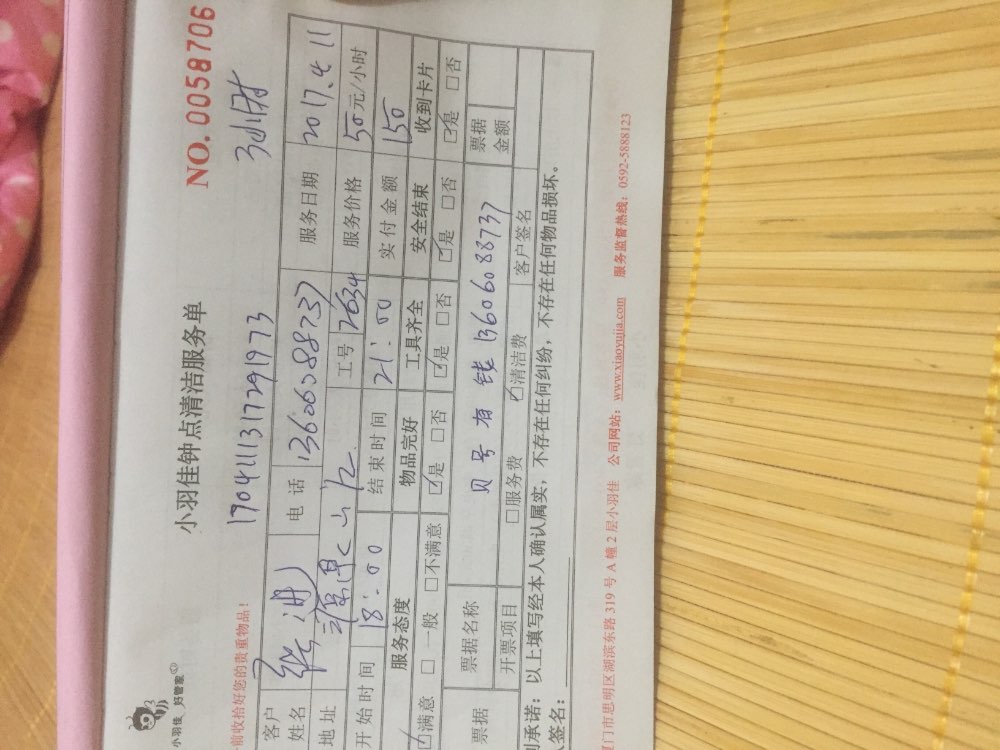 小羽佳 好管家
小羽佳钟点清洁服务单
NO.0058706
前收拾好您的贵重物品！
1704111317291973
3小时
客户姓名
电 话 13606088737
服务日期 2017.4.11
地址
工号 2634
服务价格 50元/小时
开始时间 18:00
结束时间 21:00
实付金额 150
服务态度 物品完好 工具齐全 安全结束 收到卡片
☑满意 □一般 □不满意 ☑是 □否 ☑是 □否 ☑是 □否 ☑是 □否
票据 票据名称 13606088737 票据金额
开票项目 □服务费 ☑清洁费 客户签名
承诺：以上填写经本人确认属实，不存在任何纠纷，不存在任何物品损坏。
签名：
门市思明区湖滨东路319号A幢2层小羽佳 公司网站：www.xiaoyujia.com 服务监督热线：0592-5888123